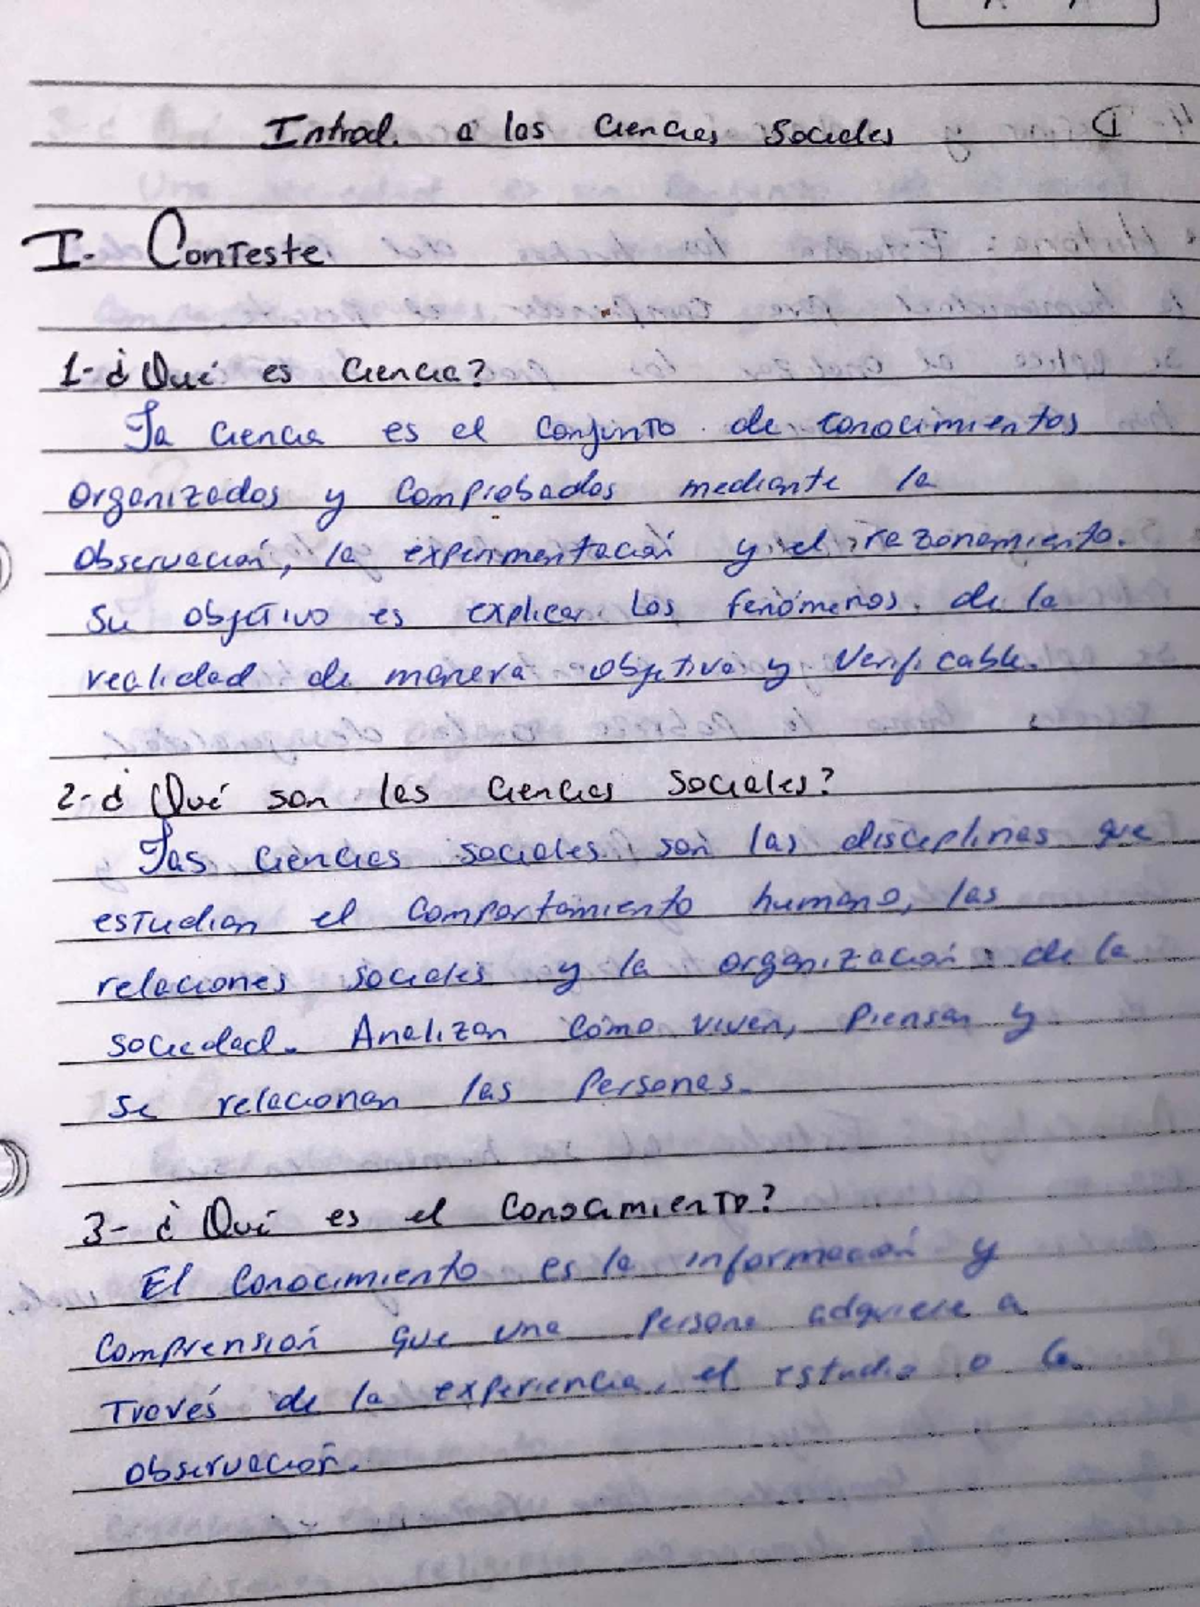 Introd. a las Ciencias Sociales
I- Conteste.
1- ¿Qué es Ciencia?
La ciencia es el conjunto de conocimientos
organizados y comprobados mediante la
observación, la experimentación y el razonamiento.
Su objetivo es explicar los fenómenos de la
realidad de manera objetiva y verificable.
2- ¿Qué son las Ciencias Sociales?
Las ciencias sociales son las disciplinas que
estudian el comportamiento humano, las
relaciones sociales y la organización de la
sociedad. Analizan cómo viven, piensan y
se relacionan las personas.
3- ¿Qué es el Conocimiento?
El conocimiento es la información y
comprensión que una persona adquiere a
través de la experiencia, el estudio o la
observación.